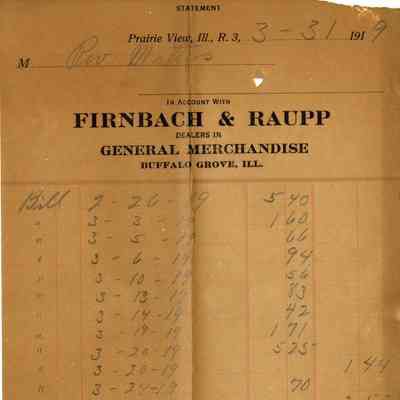 STATEMENT
Prairie View, Ill., R. 3, 3 - 31 1919
M Rev
IN ACCOUNT WITH
FIRNBACH & RAUPP
DEALERS IN
GENERAL MERCHANDISE
BUFFALO GROVE, ILL.
Bill 2 - 26 - 19 5 40
" 3 - 3 - 19 1 60
" 3 - 5 - 19 66
" 3 - 6 - 19 94
" 3 - 10 - 19 56
" 3 - 13 - 19 83
" 3 - 14 - 19 42
" 3 - 19 - 19 1 71
" 3 - 20 - 19 5 25
" 3 - 20 - 19 1 44
" 3 - 24 - 19 70